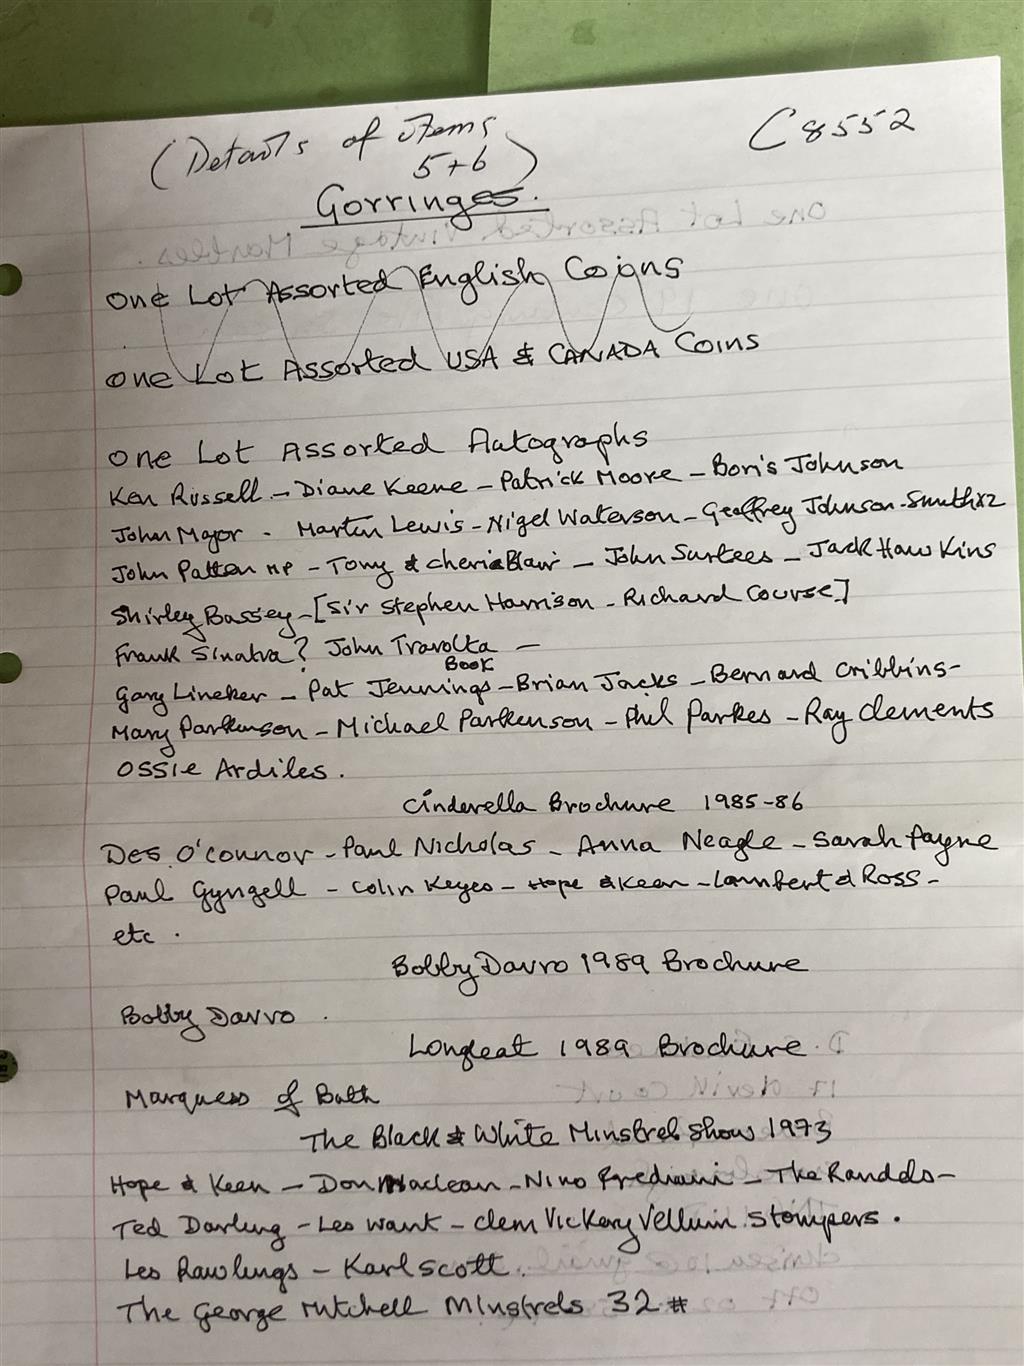 (Details of items
5+6)
C8552
Gorringes.
One Lot Assorted English Coigns
One Lot Assorted USA & CANADA Coins
One Lot Assorted Autographs
Ken Russell - Diane Keene - Patrick Moore - Boris Johnson
John Major - Martin Lewis - Nigel Waterson - Geoffrey Johnson-Smith x2
John Patten MP - Tony & Cherie Blair - John Surtees - Jack Hawkins
Shirley Bassey - [Sir Stephen Harrison - Richard Course]
Frank Sinatra? John Travolta -
Book
Gary Lineker - Pat Jennings - Brian Jacks - Bernard Cribbins -
Mary Parkinson - Michael Parkenson - Phil Parkes - Ray Clements
Ossie Ardiles.
Cinderella Brochure 1985-86
Des O'Connor - Paul Nicholas - Anna Neagle - Sarah Payne
Paul Gyngell - Colin Keyes - Hope & Keen - Lambert & Ross -
etc.
Bobby Davro 1989 Brochure
Bobby Davro.
Longleat 1989 Brochure
Marquess of Bath
The Black & White Minstrel Show 1973
Hope & Keen - Don Maclean - Nino Frediani - The Randels -
Ted Darling - Les Want - Clem Vickery Vellum Stompers.
Les Rawlings - Karl Scott.
The George Mitchell Minstrels 32 #